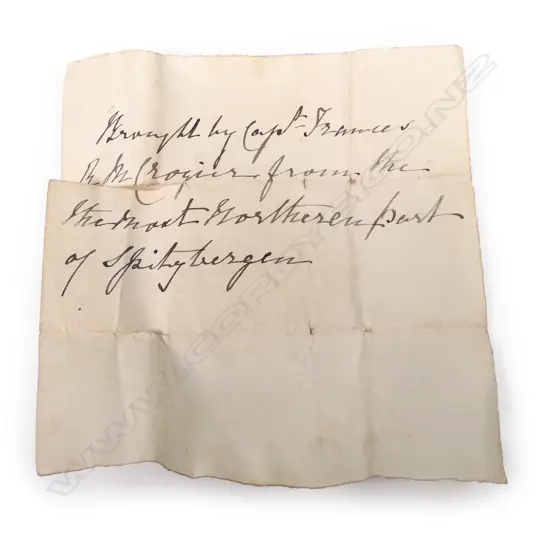 Brought by Capt Frances
R. M. Crozier from the
the most Northeren part
of Spitzbergen
WWW.CORDYS.CO.NZ